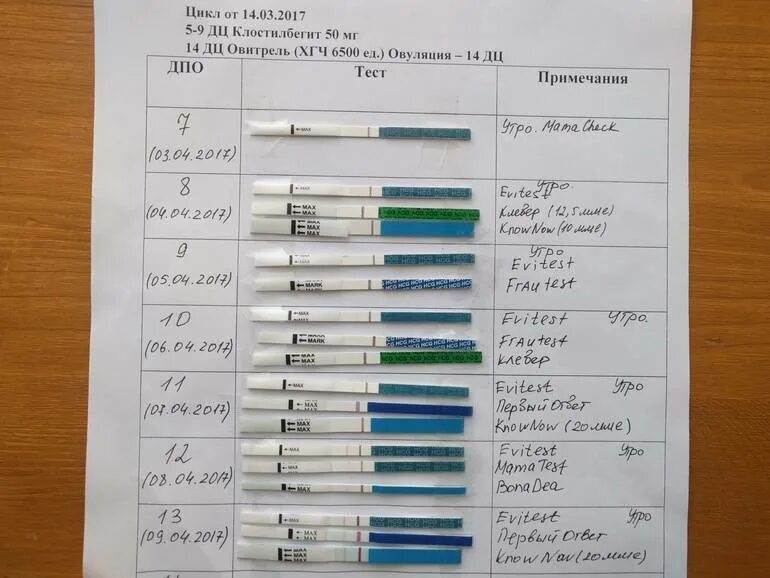 Цикл от 14.03.2017
5-9 ДЦ Клостилбегит 50 мг
14 ДЦ Овитрель (ХГЧ 6500 ед.) Овуляция – 14 ДЦ
ДПО Тест Примечания
7 MAX Утро. MamaCheck
(03.04.2017)
8 MAX Утро.
Evitest
(04.04.2017) MAX HCG HCG HCG HCG HCG Клевер (12,5 мме)
MAX KnowNow (10 мме)
9 Утро
Evitest
(05.04.2017) MARK HCG HCG HCG Frautest
10 MAX Evitest Утро.
(06.04.2017) MARK HCG HCG HCG Frautest
MAX HCG HCG HCG HCG Клевер
11 MAX Evitest Утро
(07.04.2017) MAX Первый Ответ
MAX KnowNow (20 мме)
12 MAX Evitest Утро
(08.04.2017) MAX MamaTest
MAX BonaDea
13 MAX Evitest Утро
(09.04.2017) MAX Первый Ответ
MAX KnowNow (20 мме)